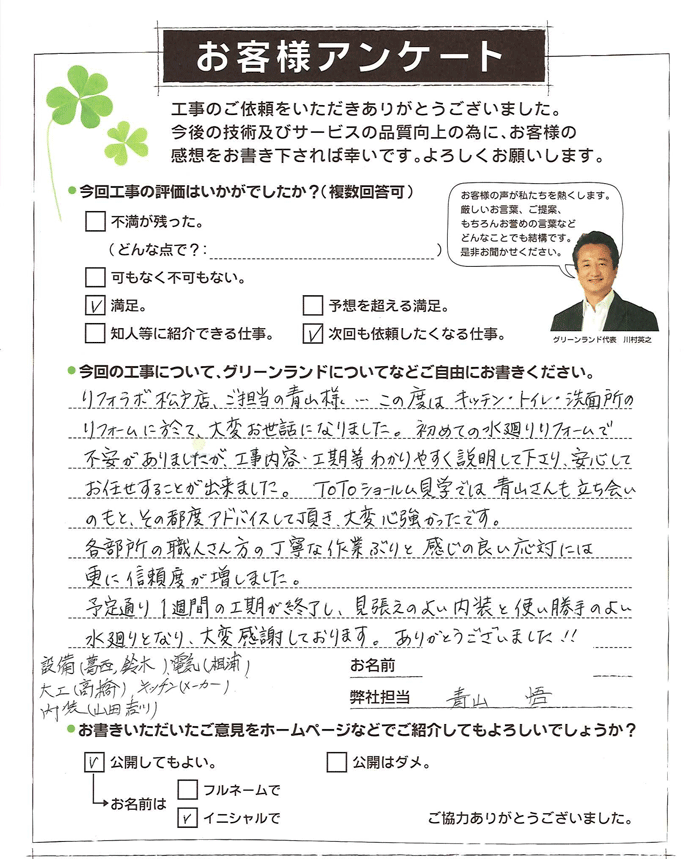 お客様アンケート
工事のご依頼をいただきありがとうございました。
今後の技術及びサービスの品質向上の為に、お客様の
感想をお書き下されば幸いです。よろしくお願いします。
●今回工事の評価はいかがでしたか?(複数回答可)
お客様の声が私たちを熱くします。
厳しいお言葉、ご提案、
もちろんお誉めの言葉など
どんなことでも結構です。
是非お聞かせください。
不満が残った。
(どんな点で?: )
可もなく不可もない。
✓ 満足。 予想を超える満足。
知人等に紹介できる仕事。 ✓ 次回も依頼したくなる仕事。
グリーンランド代表 川村英之
●今回の工事について、グリーンランドについてなどご自由にお書きください。
リフォラボ松戸店、ご担当の青山様、… この度は キッチン・トイレ・洗面所の
リフォームに於て、大変お世話になりました。初めての水廻りリフォームで
不安がありましたが、工事内容・工期等わかりやすく説明して下さり、安心して
お任せすることが出来ました。 TOTOショールーム見学では青山さんも立ち会い
のもと、その都度アドバイスして頂き、大変心強かったです。
各部所の職人さん方の丁寧な作業ぶりと感じの良い応対には
更に信頼度が増しました。
予定通り1週間の工期が終了し、見張えのよい内装と使い勝手のよい
水廻りとなり、大変感謝しております。ありがとうございました!!
設備(葛西,鈴木)電気(相浦)
大工(高橋)キッチン(メーカー)
内装(山田
お名前
弊社担当 青山 悟
●お書きいただいたご意見をホームページなどでご紹介してもよろしいでしょうか?
✓ 公開してもよい。 公開はダメ。
お名前は フルネームで
✓ イニシャルで
ご協力ありがとうございました。